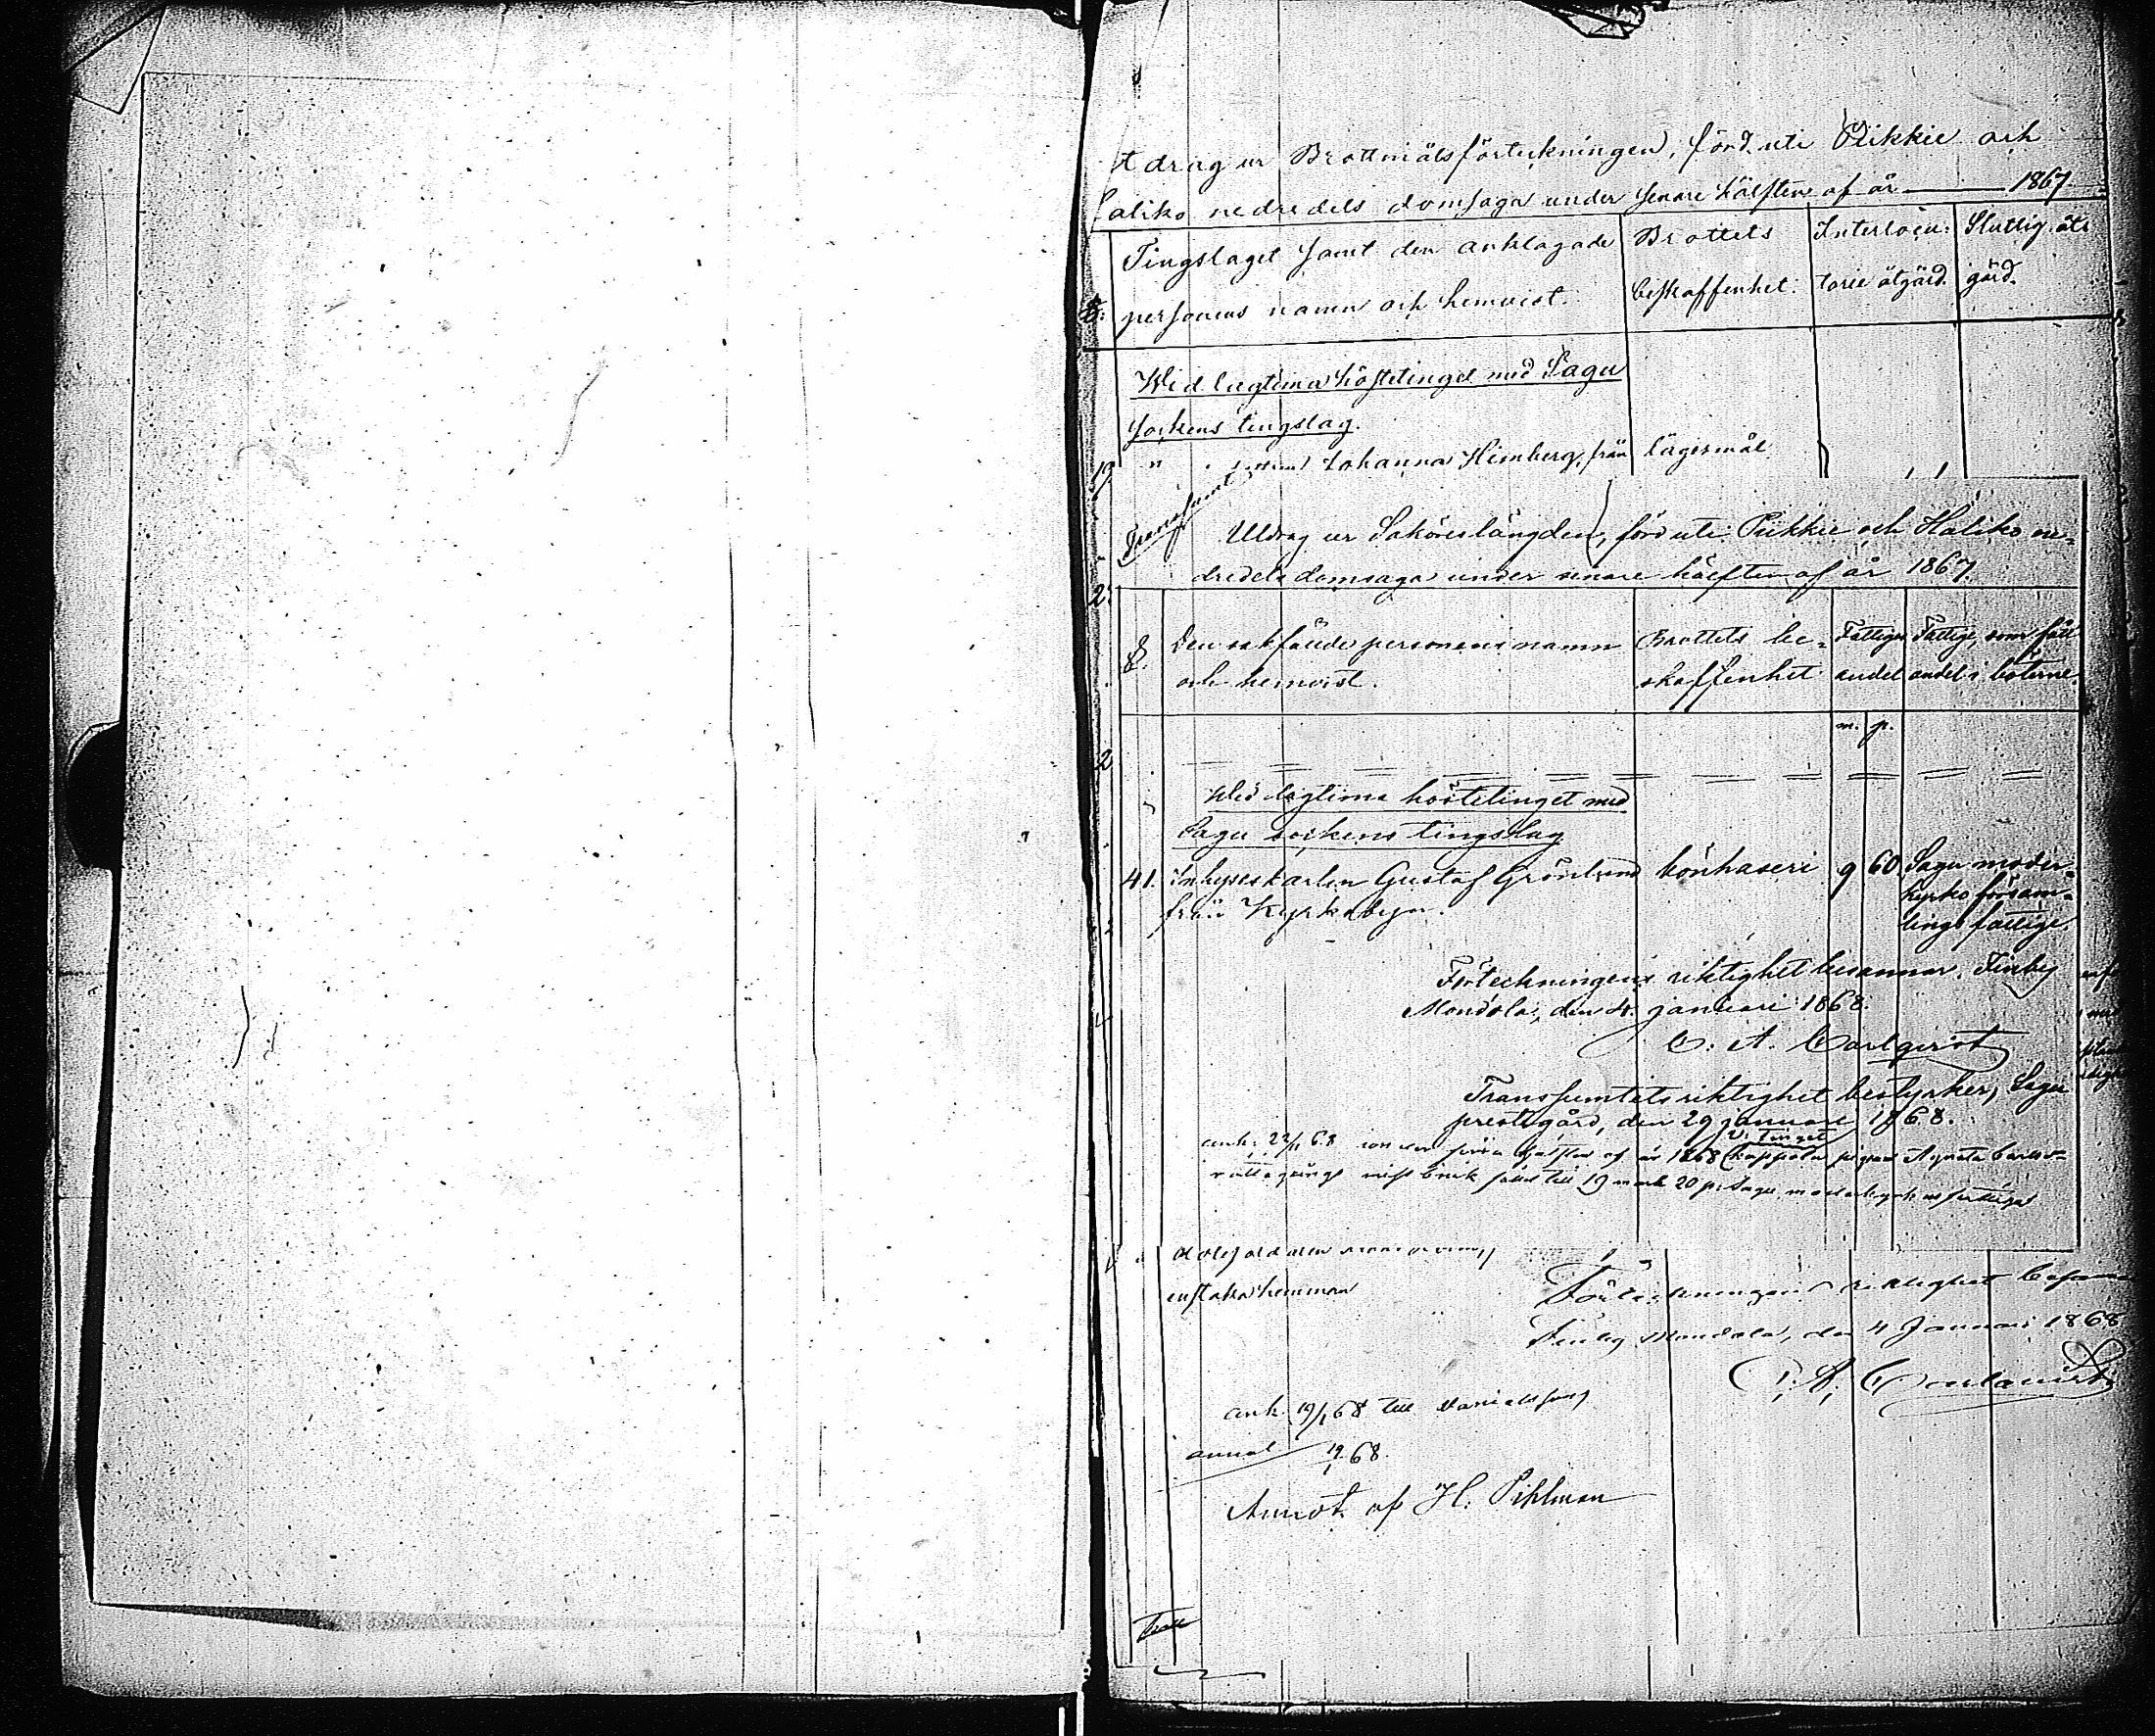 tdrag ur Brottmålsförteckningen, förd uti Piikkie och
Haliko nedredels domsaga under senare hälften af år 1867
Tingslaget samt den anklagade personens namn och hemvist.
Brottets beskaffenhet.
Interlocutorie åtgärd.
Slutlig åtgärd.
Wid lagtima höstetinget med Sagu
sockens tingslag.
19. Johanna Himberg, från lägersmål
Transsumt
Utdrag ur Saköreslängden, förd uti Piikkie och Haliko ne-
dredels domsaga under senare hälften af år 1867.
Den sakfälde personens namn
och hemvist.
Brottets be-
skaffenhet
Fattiges
andel
Fattige, som fått
andel i böterne.
m. p.
Wid lagtima höstetinget med
Sagu sockens tingslag
41. Inhyseskarlen Gustaf Grönlund bönhaseri 9 60 Sagu moder-
från Kyrkobyn. kyrko försam-
lings fattige.
Förteckningens riktighet besannar. Finby
Mondola, den 4. januari 1868.
C. A. Carlqvist
Transsumtets riktighet bestyrker, Sagu
prestgård, den 29 januari 1868.
V. Tinget
ank. 22/11 68 af år 1868 pigan Agata
rättegångs missbruk fälld till 19 mark 20 p. Sagu moderkyrkas fattiga
enstaka hemman
Förteckningens riktighet
Finby Mondola, den 4 Januari 1868
C. A. Carlqvist
ank. 19/1 68 till
annot 19/1 68.
Annot. af H. Pihlman